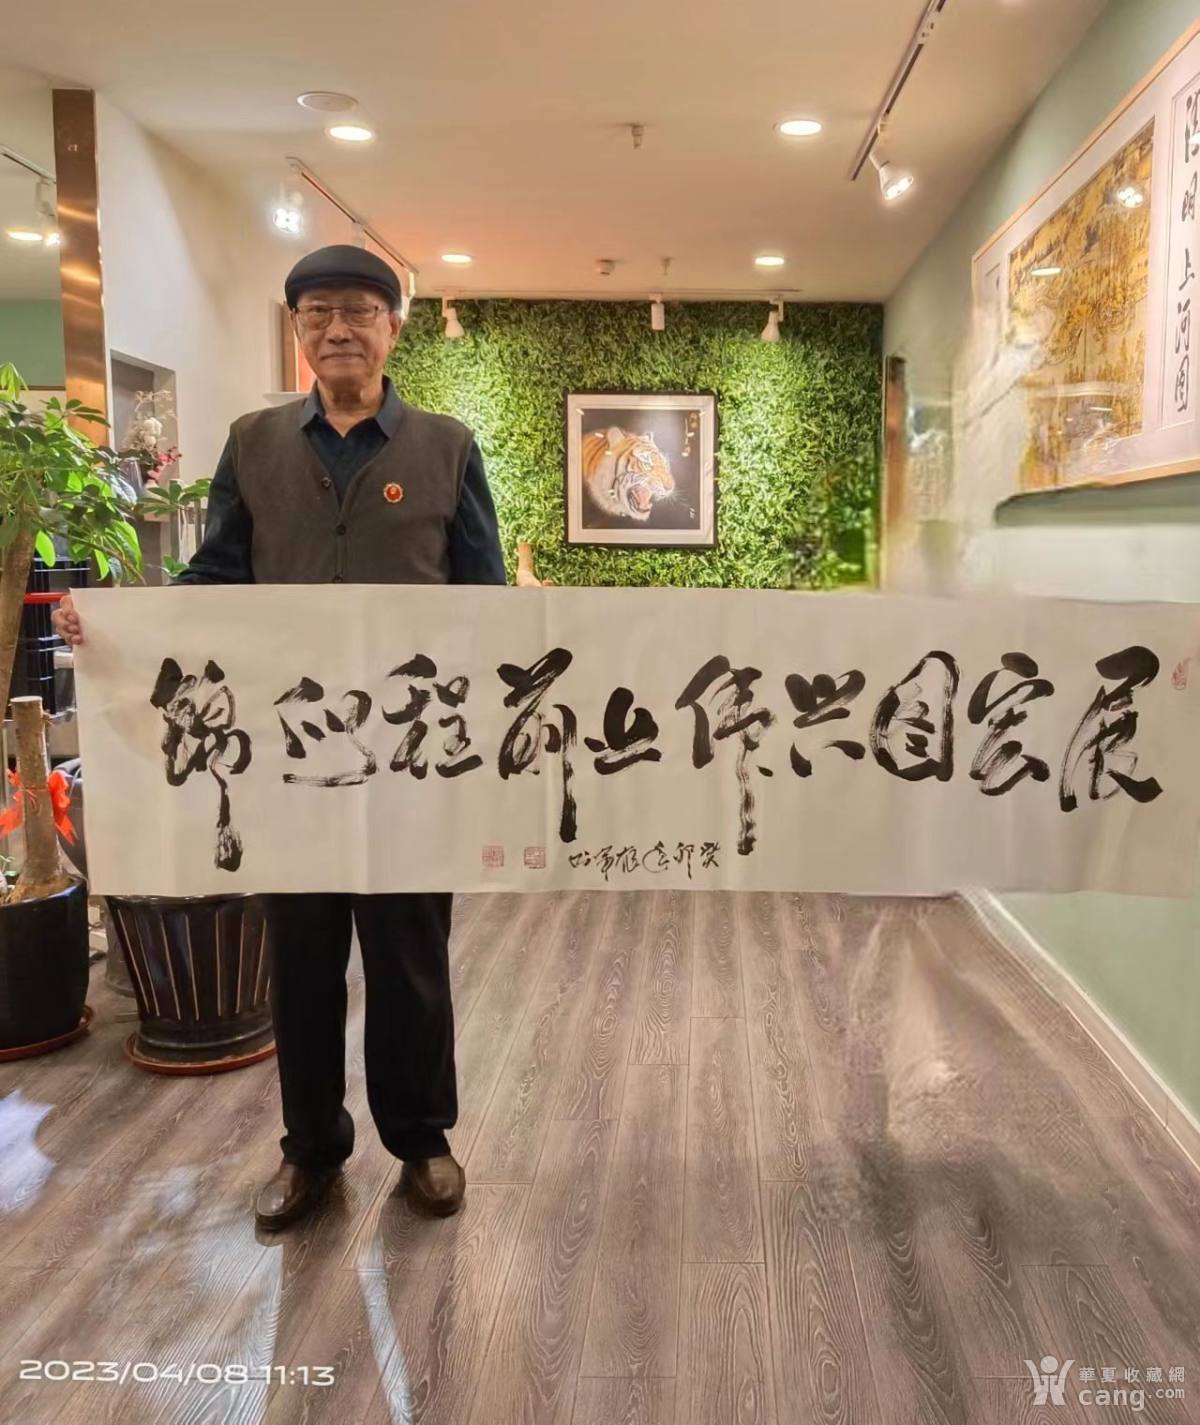 展宏图兴伟业前程似錦
癸卯
清明上河图
2023/04/08 11:13
華夏收藏網
cang.com